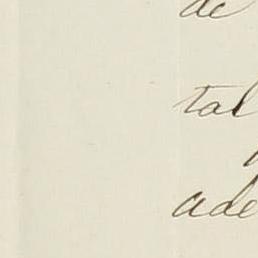 de
tal
ade